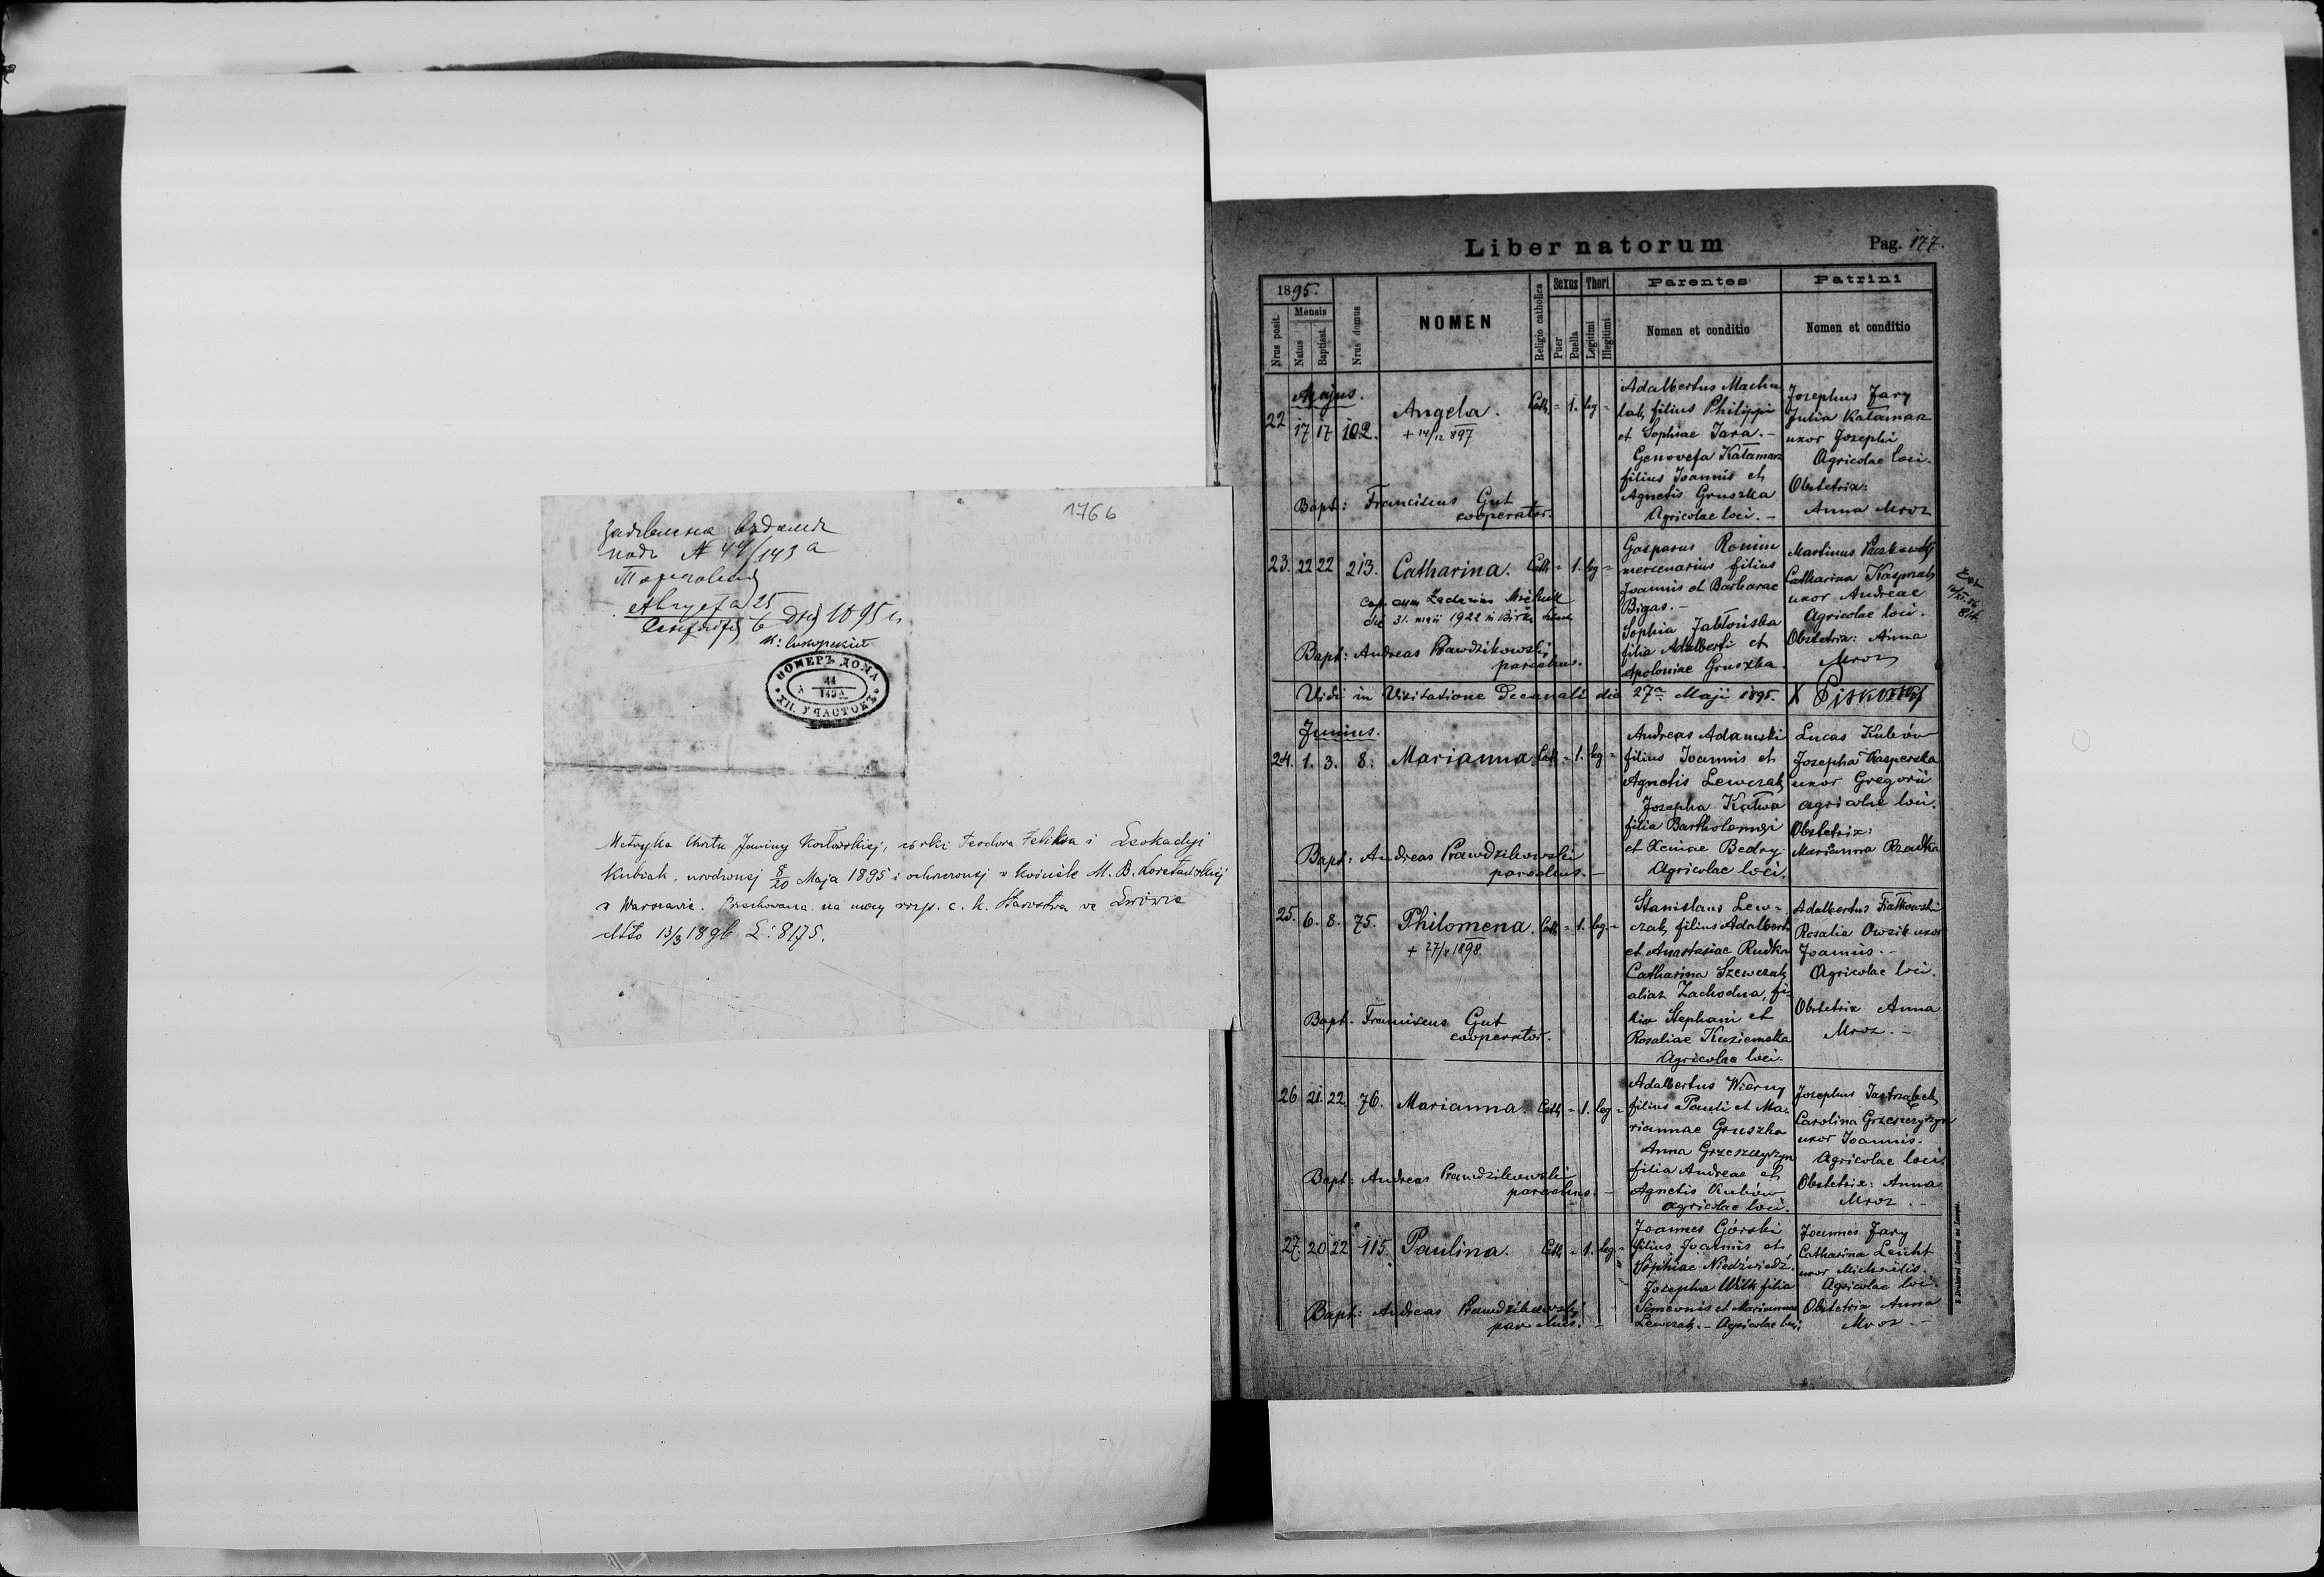 1766
под № 44/143 а
Августа 25
дня 1895 г.
НОМЕРЪ ДОМА
44
143А
XII. УЧАСТОКЪ
Metryka chrztu Janiny Kozłowskiej, córki Teodora Feliksa i Leokadyi
Kubiak, urodzonej 8/20 Maja 1895 i ochrzczonej w kościele M. B.
w Warszawie. na mocy rozp. c. k. Starostwa we Lwowie
ddto 13/3 1896 L: 8175.
Liber natorum
Pag. 177.
1895.
Mensis
Nrus posit.
Natus
Baptisat.
Nrus domus
NOMEN
Religio catholica
Sexus
Puer
Puella
Thori
Legitimi
Illegitimi
Parentes
Nomen et conditio
Patrini
Nomen et conditio
Majus.
22 17 17 102. Angela. Cath. = 1. leg =
+ 14/12 897
Bapt: Franciscus Gut
cooperator.
Adalbertus Machu
lak, filius Philippi
et Sophiae Jara. -
Genovefa Katamarz
filius Joannis et
Agnetis Gruszka
Agricolae loci. -
Josephus Jary
Julia Katamarz
uxor Josephi
Agricolae loci.
Obstetrix:
Anna Mroz
23. 22 22 213. Catharina. Cath = 1. leg =
Cop. cum
die 31. maii 1922 in
Bapt: Andreas Prawdzikowski
parochus.
Gasparus
mercenarius filius
Joannis et Barbarae
Bigas. -
Sophia Jabłońska
filia Adalberti et
Apoloniae Gruszka.
Martinus
Catharina Kasprzak
uxor Andreae
Agricolae loci.
Obstetrix: Anna
Mroz
Vidi in Visitatione Decanali die 27a Maji 1895. X
Junius.
24. 1. 3. 8. Marianna. Cath = 1. leg =
Bapt: Andreas Prawdzikowski
parochus. -
Andreas Adamski
filius Joannis et
Agnetis Lewczak
Josepha Katwa
filia Bartholomaei
et Xeniae Bedry
Agricolae loci.
Lucas Kubów
Josepha Kasperska
uxor Gregorii
agricolae loci.
Obstetrix:
Marianna Rzadka
25. 6. 8. 75. Philomena. Cath = 1. leg. =
+ 27/x 1898
Bapt. Franciscus Gut
cooperator.
Stanislaus Lew-
czak, filius Adalberti
et Anastasiae Rudka
Catharina Szewczak
alias Zachodna, fi-
lia Stephani et
Rosaliae Kuziemska
Agricolae loci.
Adalbertus Fiałkowski
Rosalia Owsik uxor
Joannis. -
Agricolae loci.
Obstetrix Anna
Mroz. -
26 21. 22. 76. Marianna. Cath = 1. leg =
Bapt: Andreas Prawdzikowski
parochus. -
Adalbertus Wierny
filius Pauli et Ma-
riannae Gruszka
Anna Grzeszczyszyn
filia Andreae et
Agnetis Kubów
agricolae loci.
Josephus Jastrząbek
Carolina Grzeszczyszyn
uxor Joannis.
Agricolae loci.
Obstetrix: Anna
Mroz. -
27. 20 22 115. Paulina. Cath = 1. leg. =
Bapt: Andreas Prawdzikowski
parochus. -
Joannes Górski
filius Joannis et
Sophiae Niedźwiedź.
Josepha Wilk filia
Simeonis et Mariannae
Lewczak. - Agricolae loci.
Joannes Jary
Catharina Leicht
uxor Michaëlis.
Agricolae loci.
Obstetrix Anna
Mroz. -